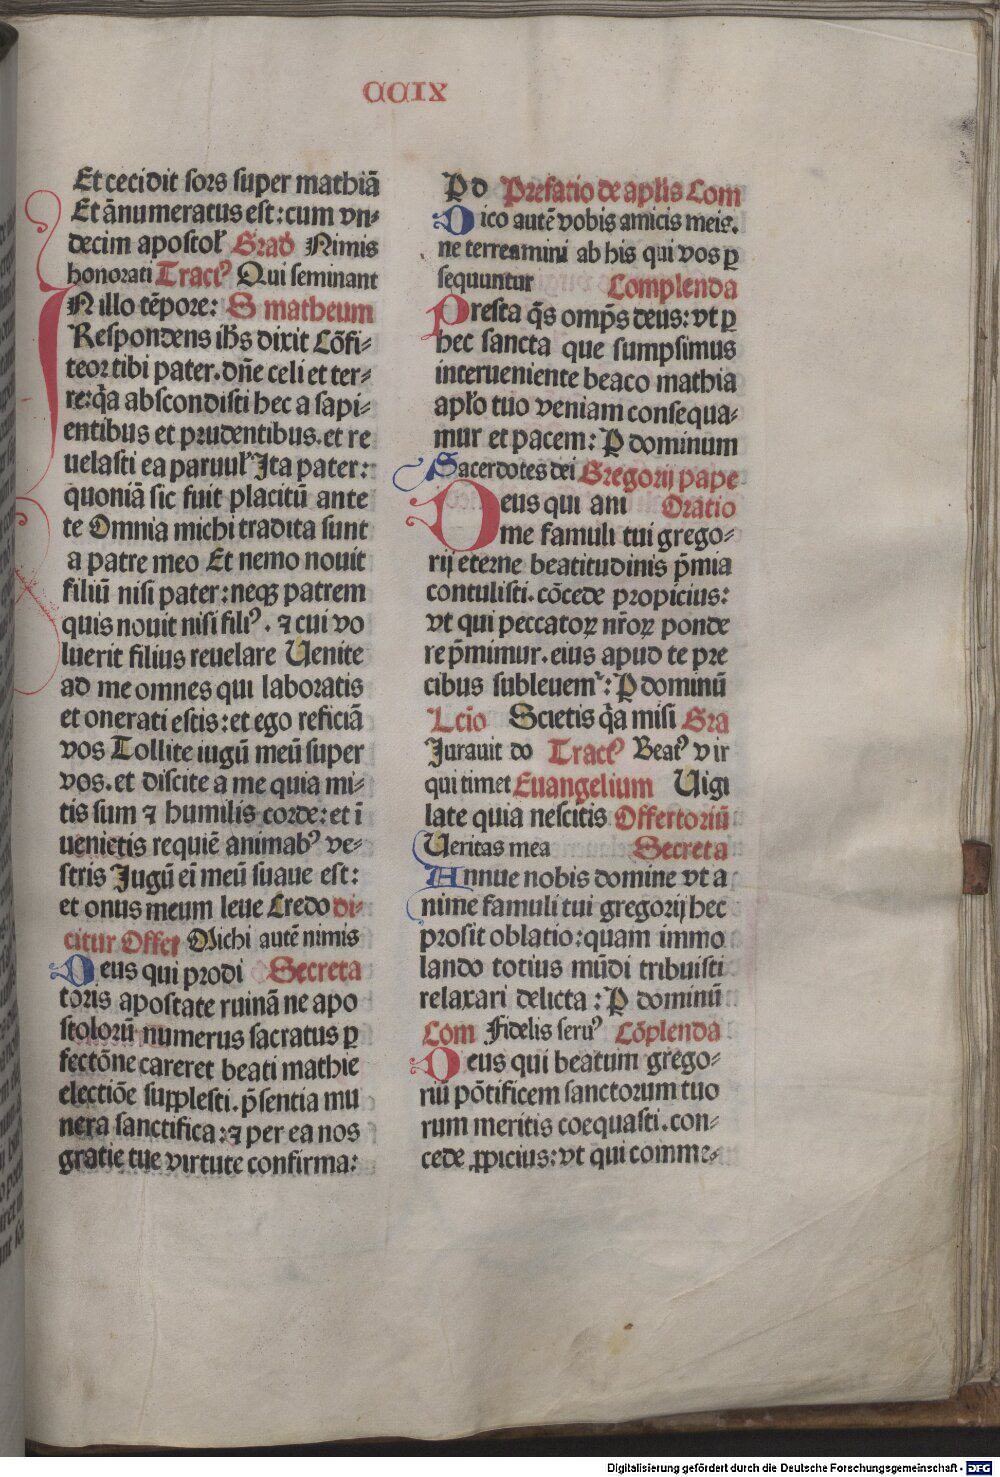 CCIX
Et cecidit sors super mathiā
Et ānumeratus est: cum vn⸗
decim apostoł Grad Nimis
honorati Tractꝰ Qui seminant
IN illo tēpore: S matheum
Respondens ihs dixit Cōfi⸗
teor tibi pater. dn̄e celi et ter⸗
re: q̄a abscondisti hec a sapi⸗
entibus et prudentibus. et re
uelasti ea paruuł Ita pater:
quoniā sic fuit placitū ante
te Omnia michi tradita sunt
a patre meo Et nemo nouit
filiū nisi pater: neqꝫ patrem
quis nouit nisi filiꝰ. ⁊ cui vo
luerit filius reuelare Uenite
ad me omnes qui laboratis
et onerati estis: et ego reficiā
vos Tollite iugū meū super
vos. et discite a me quia mi⸗
tis sum ⁊ humilis corde: et ī
uenietis requiē animabꝰ ve⸗
stris Jugū ei meū suaue est:
et onus meum leue Credo di⸗
citur Offer Michi autē nimis
Deus qui prodi Secreta
toris apostate ruinā ne apo
stolorū numerus sacratus ꝑ
fectōne careret beati mathie
electiōe supplesti. p̄sentia mu
nera sanctifica: ⁊ per ea nos
gratie tue virtute confirma:
P d Prefatio de aplis Com
Dico autē vobis amicis meis.
ne terreamini ab his qui vos ꝑ
sequuntur Complenda
Presta q̄s omp̄s deus: vt ꝑ
hec sancta que sumpsimus
interueniente beaco mathia
apło tuo veniam consequa⸗
mur et pacem: P dominum
Sacerdotes dei Gregorij pape
Deus qui ani Oratio
me famuli tui grego⸗
rij eterne beatitudinis p̄mia
contulisti. cōcede propicius:
vt qui peccatoꝝ nr̄oꝝ ponde
re p̄mimur. eius apud te pre
cibus subleuemꝰ: P dominū
Lcīo Scietis q̄a misi Gra
Jurauit do Tractꝰ Beatꝰ vir
qui timet Euangelium Uigi
late quia nescitis Offertoriū
Ueritas mea Secreta
Annue nobis domine vt a
nime famuli tui gregorij hec
prosit oblatio: quam immo
lando totius mūdi tribuisti
relaxari delicta: P dominū
Com Fidelis seruꝰ Cōplenda
Deus qui beatum grego⸗
riū pōtificem sanctorum tuo
rum meritis coequasti. con⸗
cede ꝓpicius: vt qui comme⸗
Digitalisierung gefördert durch die Deutsche Forschungsgemeinschaft - DFG